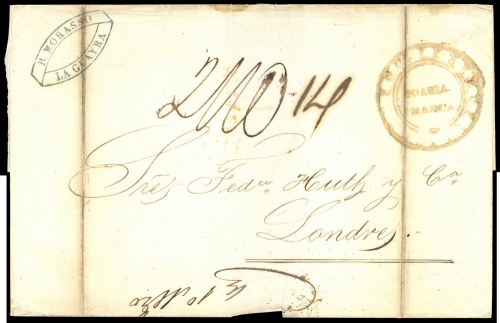 H. MORASSO
LA GUAYRA
GUAIRA
FRANCA
14
Sres. Fedco. Huth y Ca.
Londres.